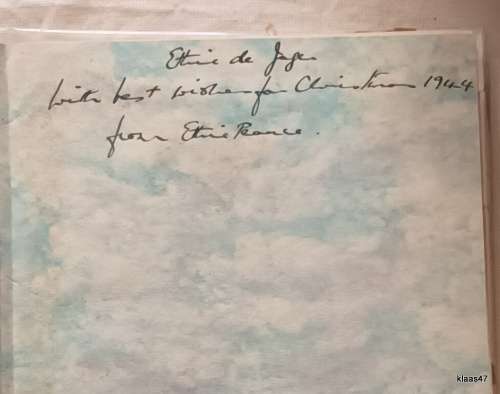 Ethie de Jager
with best wishes for Christmas 1944
from Ethie Pearce.
klaas47